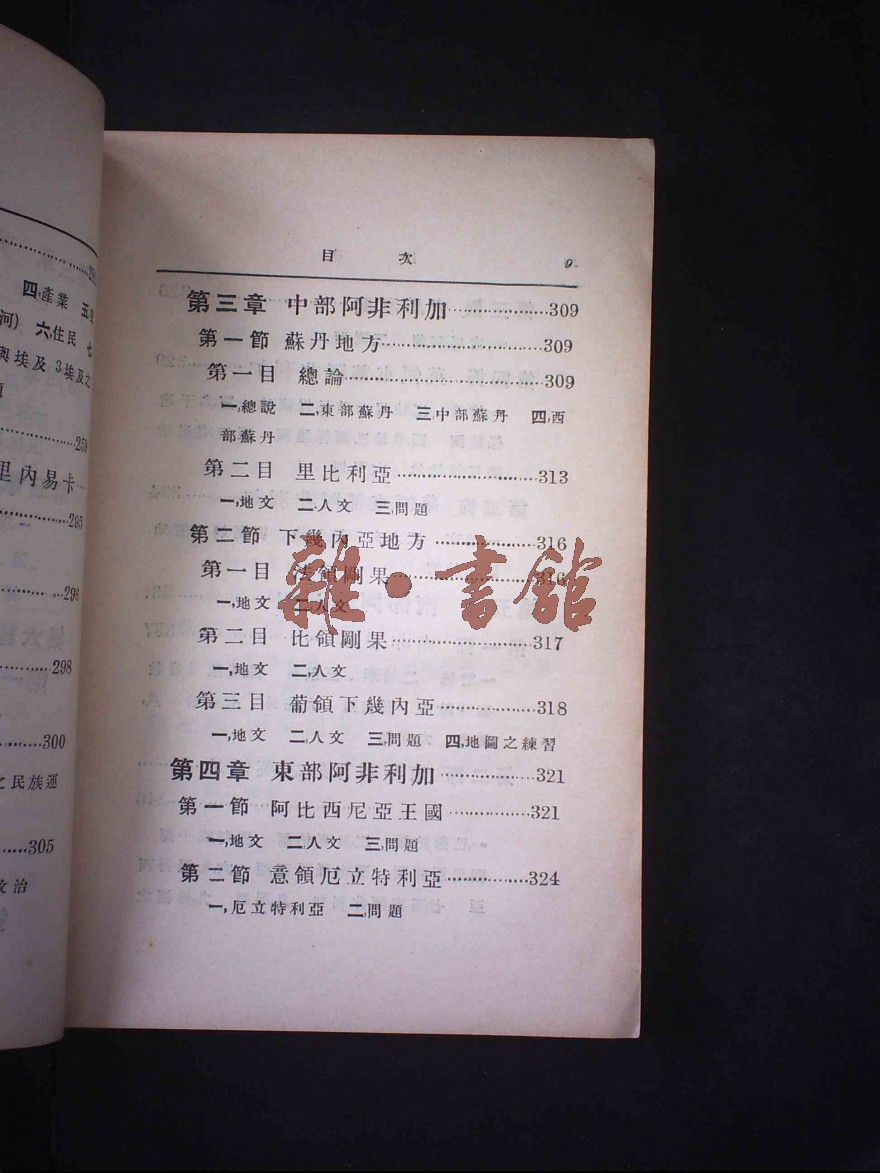 259
四,產業 五
河) 六,住民 七
與埃及 3埃及之
259
里內易卡
295
296
298
300
之民族運
305
政治
目 次 9
第三章 中部阿非利加…………309
第一節 蘇丹地方…………309
第一目 總論…………309
一,總說 二,東部蘇丹 三,中部蘇丹 四,西
部蘇丹
第二目 里比利亞…………313
一,地文 二,人文 三,問題
第二節 下幾內亞地方…………316
第一目 法領剛果…………316
一,地文 二,人文
第二目 比領剛果…………317
一,地文 二,人文
第三目 葡領下幾內亞…………318
一,地文 二,人文 三,問題 四,地圖之練習
第四章 東部阿非利加…………321
第一節 阿比西尼亞王國…………321
一,地文 二,人文 三,問題
第二節 意領厄立特利亞…………324
一,厄立特利亞 二,問題
雜·書館